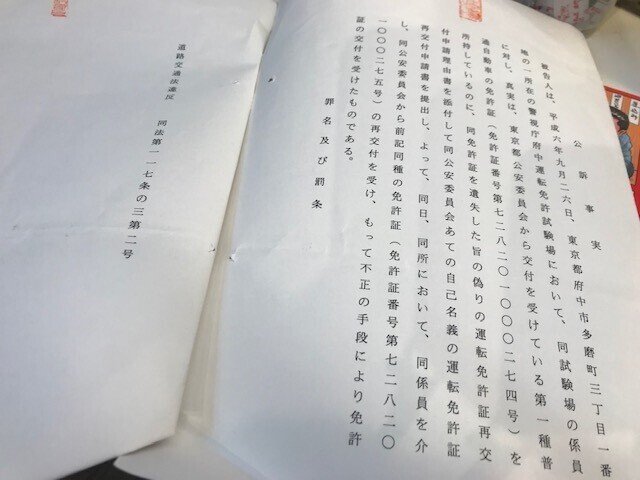 公訴事実
被告人は、平成六年九月二六日、東京都府中市多磨町三丁目一番
地の一所在の警視庁府中運転免許試験場において、同試験場の係員
に対し、真実は、東京都公安委員会から交付を受けている第一種普
通自動車の免許証（免許証番号第七二八二〇一〇〇〇二七四号）を
所持しているのに、同免許証を遺失した旨の偽りの運転免許証再交
付申請理由書を添付して同公安委員会あての自己名義の運転免許証
再交付申請書を提出し、よって、同日、同所において、同係員を介
し、同公安委員会から前記同種の免許証（免許証番号第七二八二〇
一〇〇〇二七五号）の再交付を受け、もって不正の手段により免許
証の交付を受けたものである。
罪名及び罰条
道路交通法違反　同法第一一七条の三第二号